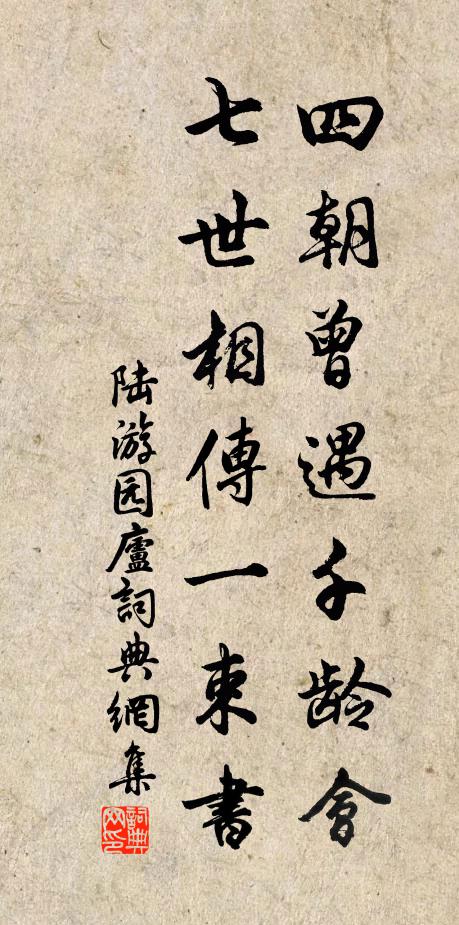 四朝曾遇千龄會
七世相傳一束書
陆游园廬詞典網集
詞典网印